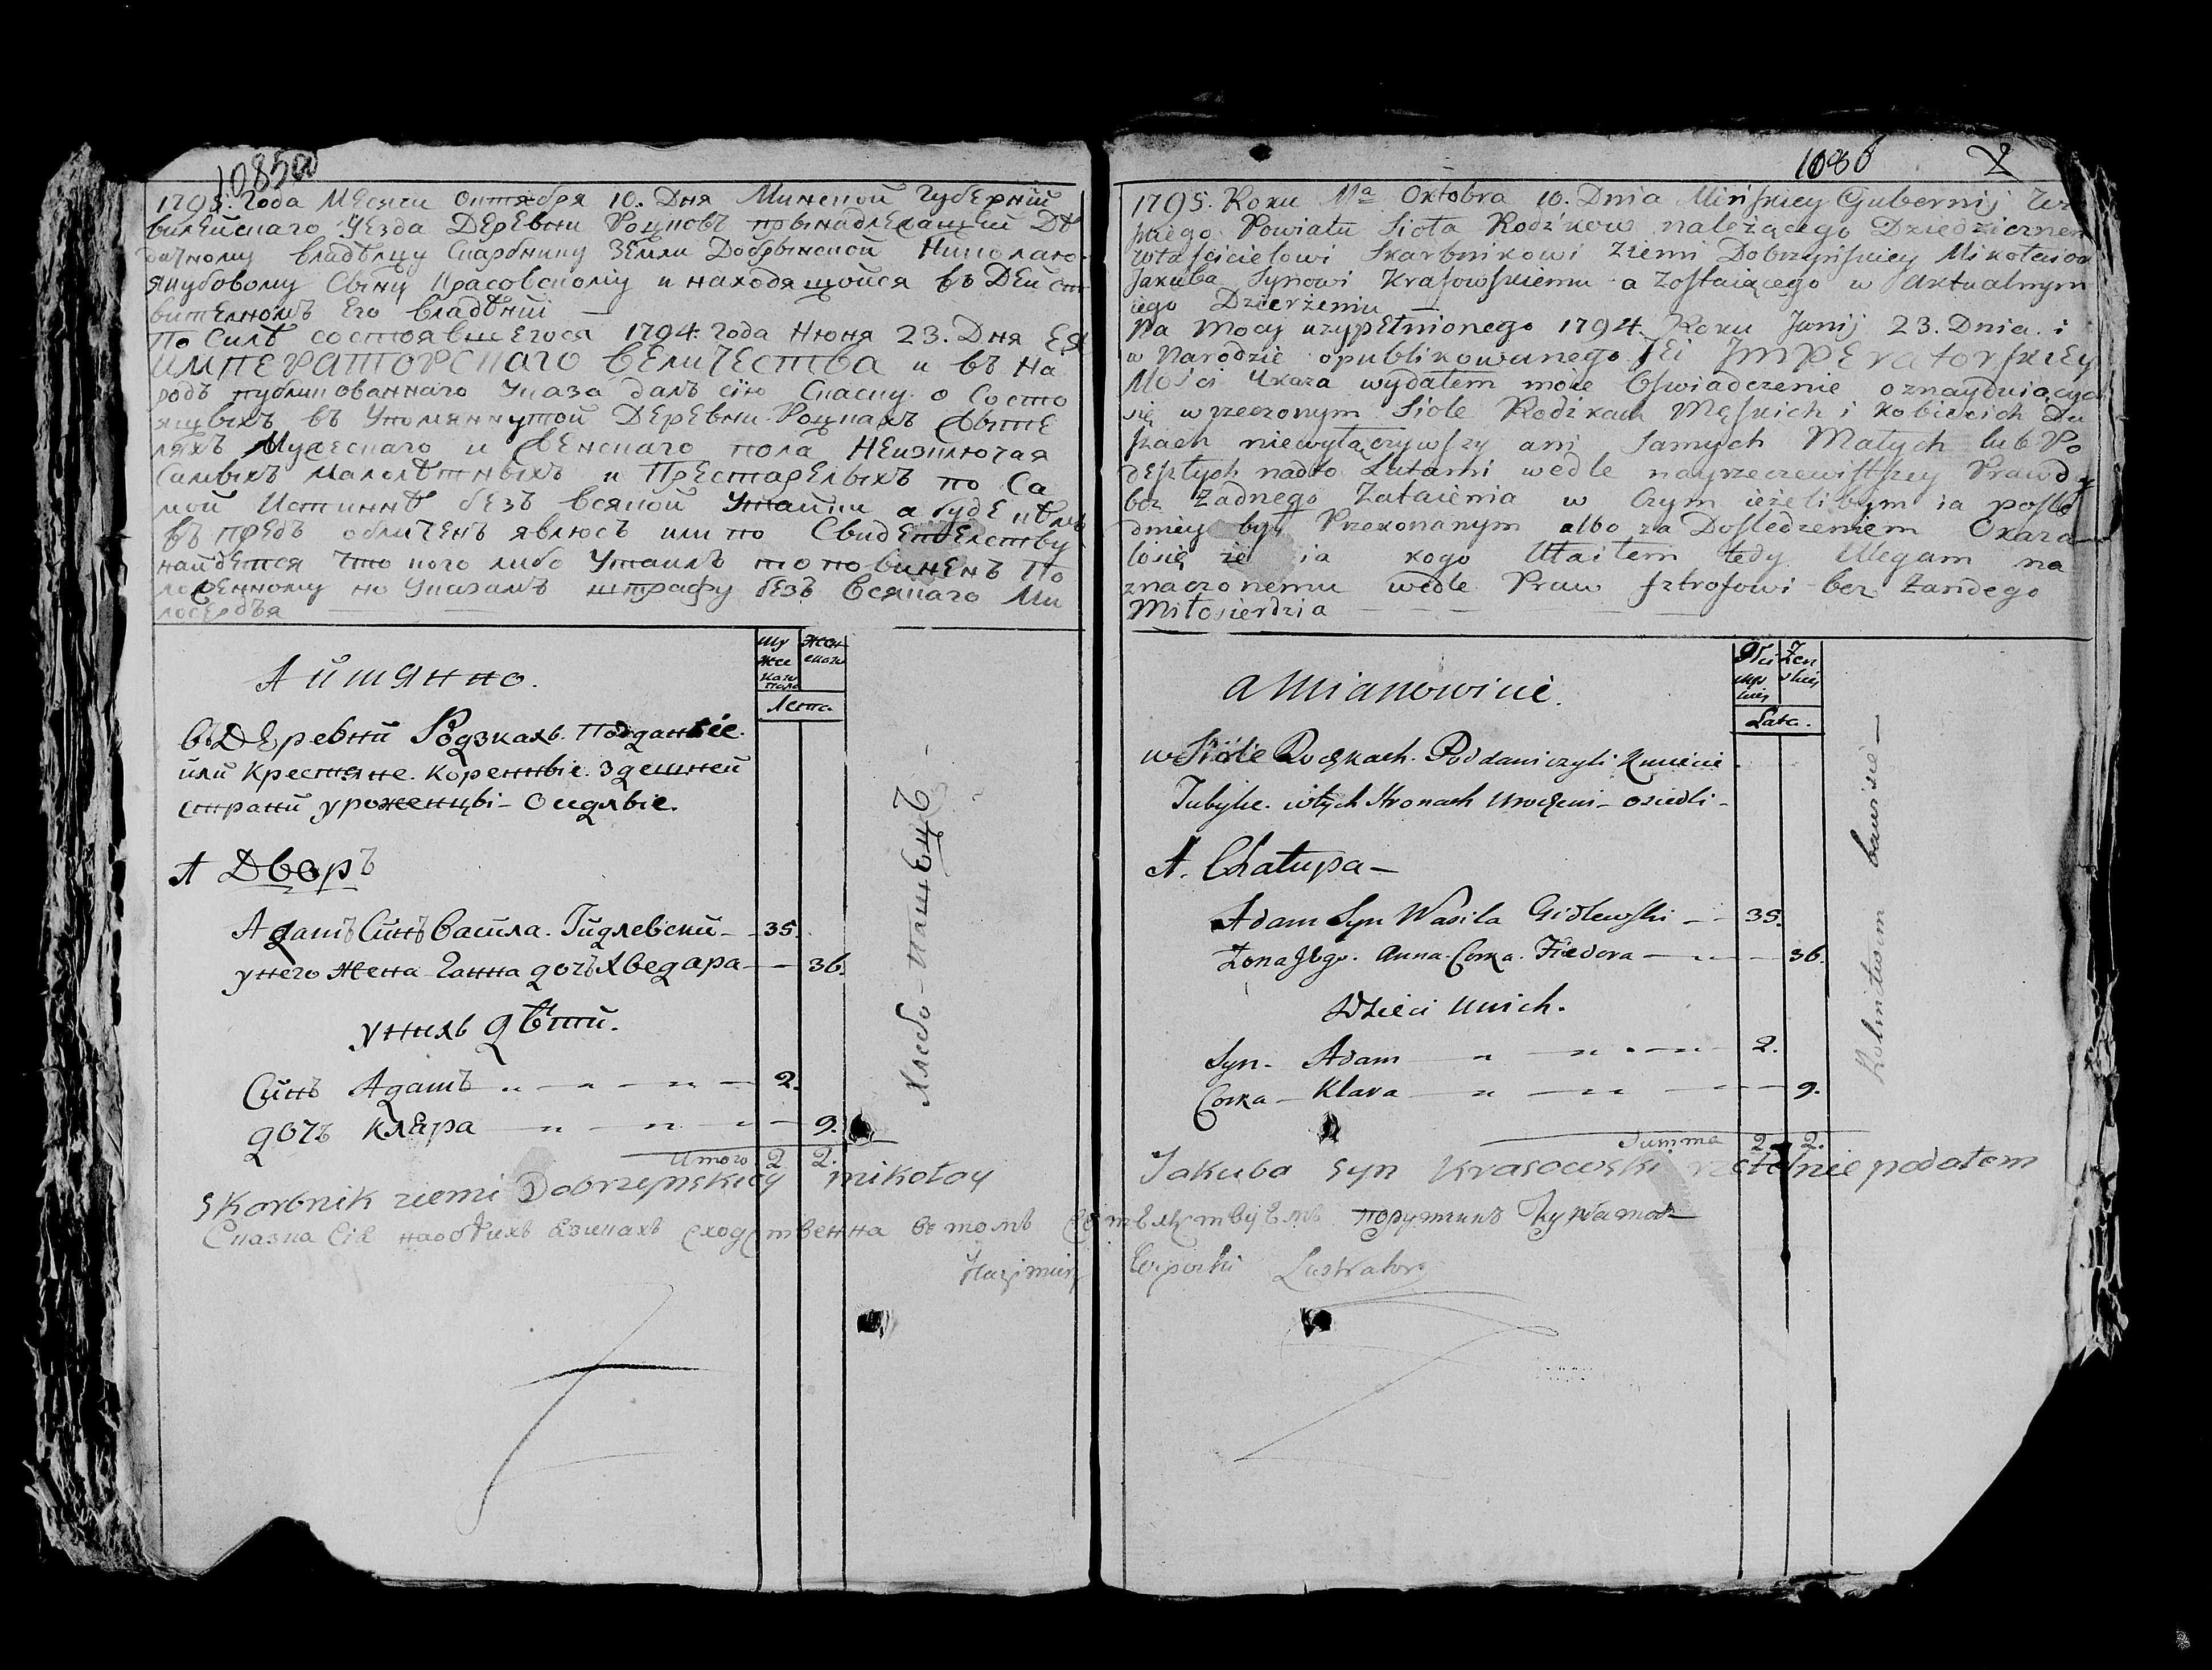 1085об
1795. Года Месяца Октября 10. Дня Минской Губерний
вилейскаго Уезда Деревни Роцковъ прынадлежащей Дѣ
дичному владѣлцу Скарбнику Земли Добрынской Николаю
Якубовому Сыну Красовскому и находящойся въ Дейст
вителномъ Его владѣнии
По Силѣ состоявшегося 1794. года Июня 23. Дня ЕЯ
ИМПЕРАТОРСКАГО ВЕЛИЧЕСТВА и въ На
родъ публикованнаго Указа далъ сїю Сказку о Состо
ящыхъ въ Упомяннутой Деревни Роцкахъ
Мужескаго и Женскаго пола Неизключая
Самыхъ Малолѣтныхъ и Престарелыхъ по Са
мой Истиннѣ безъ всякой Утайки а буде
въ предъ обличенъ явлюсъ или по Свидетелству
найдется что кого либо Утаилъ то повиненъ По
ложенному по Указамъ штрафу безъ Всякаго Ми
лосердъя
А имянно.
Му
жес
каго
пола
Жен
скаго
Лета
въ Деревни Родзкахъ. Подданые.
или Крестяне. Коренные. Здешней
страни уроженцы – Оседлые.
А Дворъ
Адамъ Синъ Васила. Гидлевский – 35.
у него Жена Ганна дочъ Хведара – – 36.
у нихъ дѣти.
Синъ Адамъ – 2.
дочъ Кляра – 9.
Итого 2 2.
Хлебо-пашецъ
1086
1795. Roku Ma Oktobra 10. Dnia Mińskiey Gubernij
skiego Powiatu Sioła Rodźkow należącego Dziedzicznem
właścicielowi Skarbnikowi Ziemi Dobrzyńskiey Mikołaiow
Jakuba Synowi Krasowskiemu a Zostaiącego w Aktualnym
iego Dzierżeniu
Na Mocy uzypełnionego 1794. Roku Junij 23. Dnia i
w Narodzie opublikowanego JEi IMPEratorskiey
Mości Ukaza wydałem moie Oswiadczenie oznayduiących
się w rzeczonym Siole Rodzkach Męskich i Kobiecich Du
szach niewyłączywszy ani Samych Małych lub Po
deszłych nadto Latami wedle nayrzeczewistszey Prawdy
bez Żadnego Zataienia w Czym ieżelibym ia posle
dniey był Przekonanym albo za Dosledzeniem Okaza
łosię że ia kogo Utaiłem tedy Ulegam na
znaczonemu wedle Praw sztrofowi bez Żandego
Miłosierdzia
a Mianowicie.
Żen
skiey
Lata.
w Siole Rodzkach. Poddani czyli Kmiecie
Tubylce. w tych Stronach Urodzeni – osiedli –
A. Chałupa –
Adam Syn Wasila Gidlewski – 35.
Żona Jego. Anna Corka. Fiedora – 36.
Dzieci unich.
Syn – Adam – 2.
Corka – Klara – 9.
Summa 2 2.
Skarbnik ziemi Dobrzynskiey Mikołay Jakuba syn Krasowski rzetelnie podałem
Сказка Сія наобѣихъ Езикахъ сходственна въ томъ поручикъ
Kazimierz Lustrator